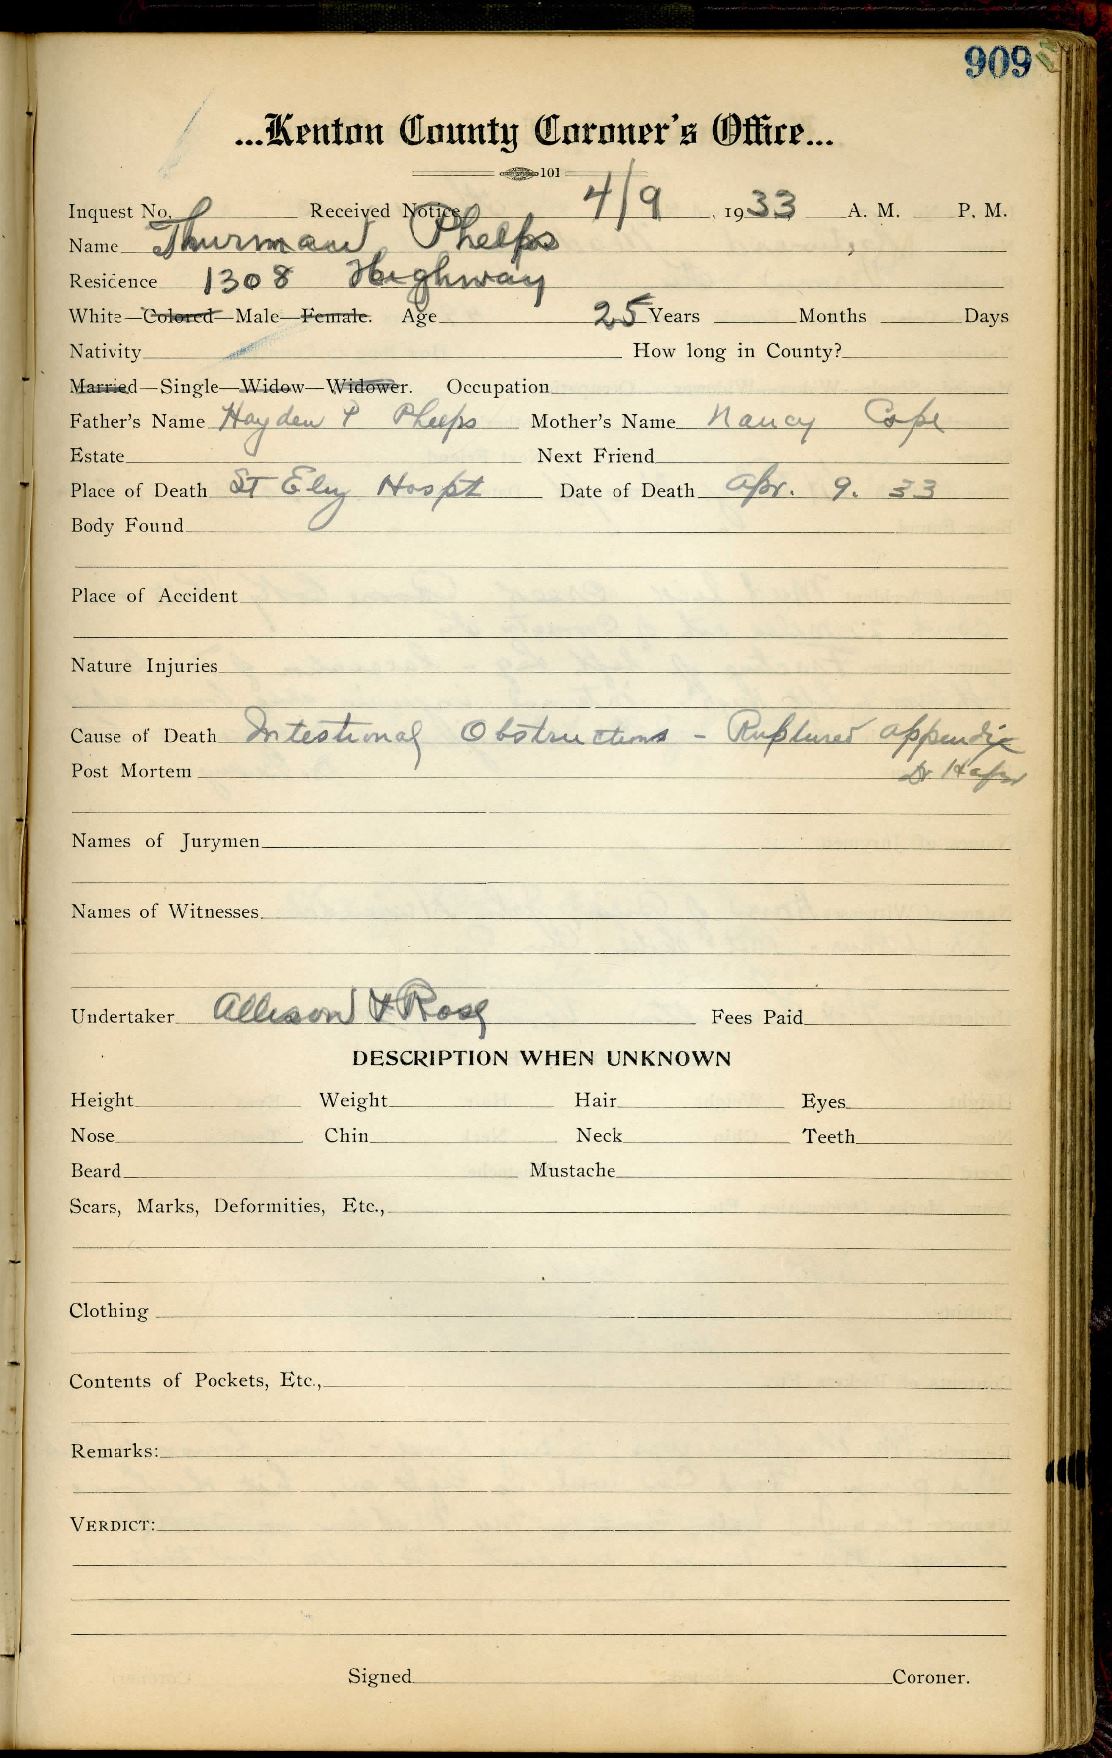 909
...Kenton County Coroner's Office...
101
Inquest No. Received Notice 4/9, 1933 A. M. P. M.
Name Thurman Phelps
Residence 1308 Highway
White—Colored—Male—Female. Age 25 Years Months Days
Nativity How long in County?
Married—Single—Widow—Widower. Occupation
Father's Name Hayden P Phelps Mother's Name Nancy Cope
Estate Next Friend
Place of Death St Eliz Hospt Date of Death Apr. 9. 33
Body Found
Place of Accident
Nature Injuries
Cause of Death Intestional Obstructions - Ruptured appendix
Post Mortem Dr
Names of Jurymen
Names of Witnesses
Undertaker Allison & Rose Fees Paid
DESCRIPTION WHEN UNKNOWN
Height Weight Hair Eyes
Nose Chin Neck Teeth
Beard Mustache
Scars, Marks, Deformities, Etc.,
Clothing
Contents of Pockets, Etc.,
Remarks:
VERDICT:
Signed Coroner.